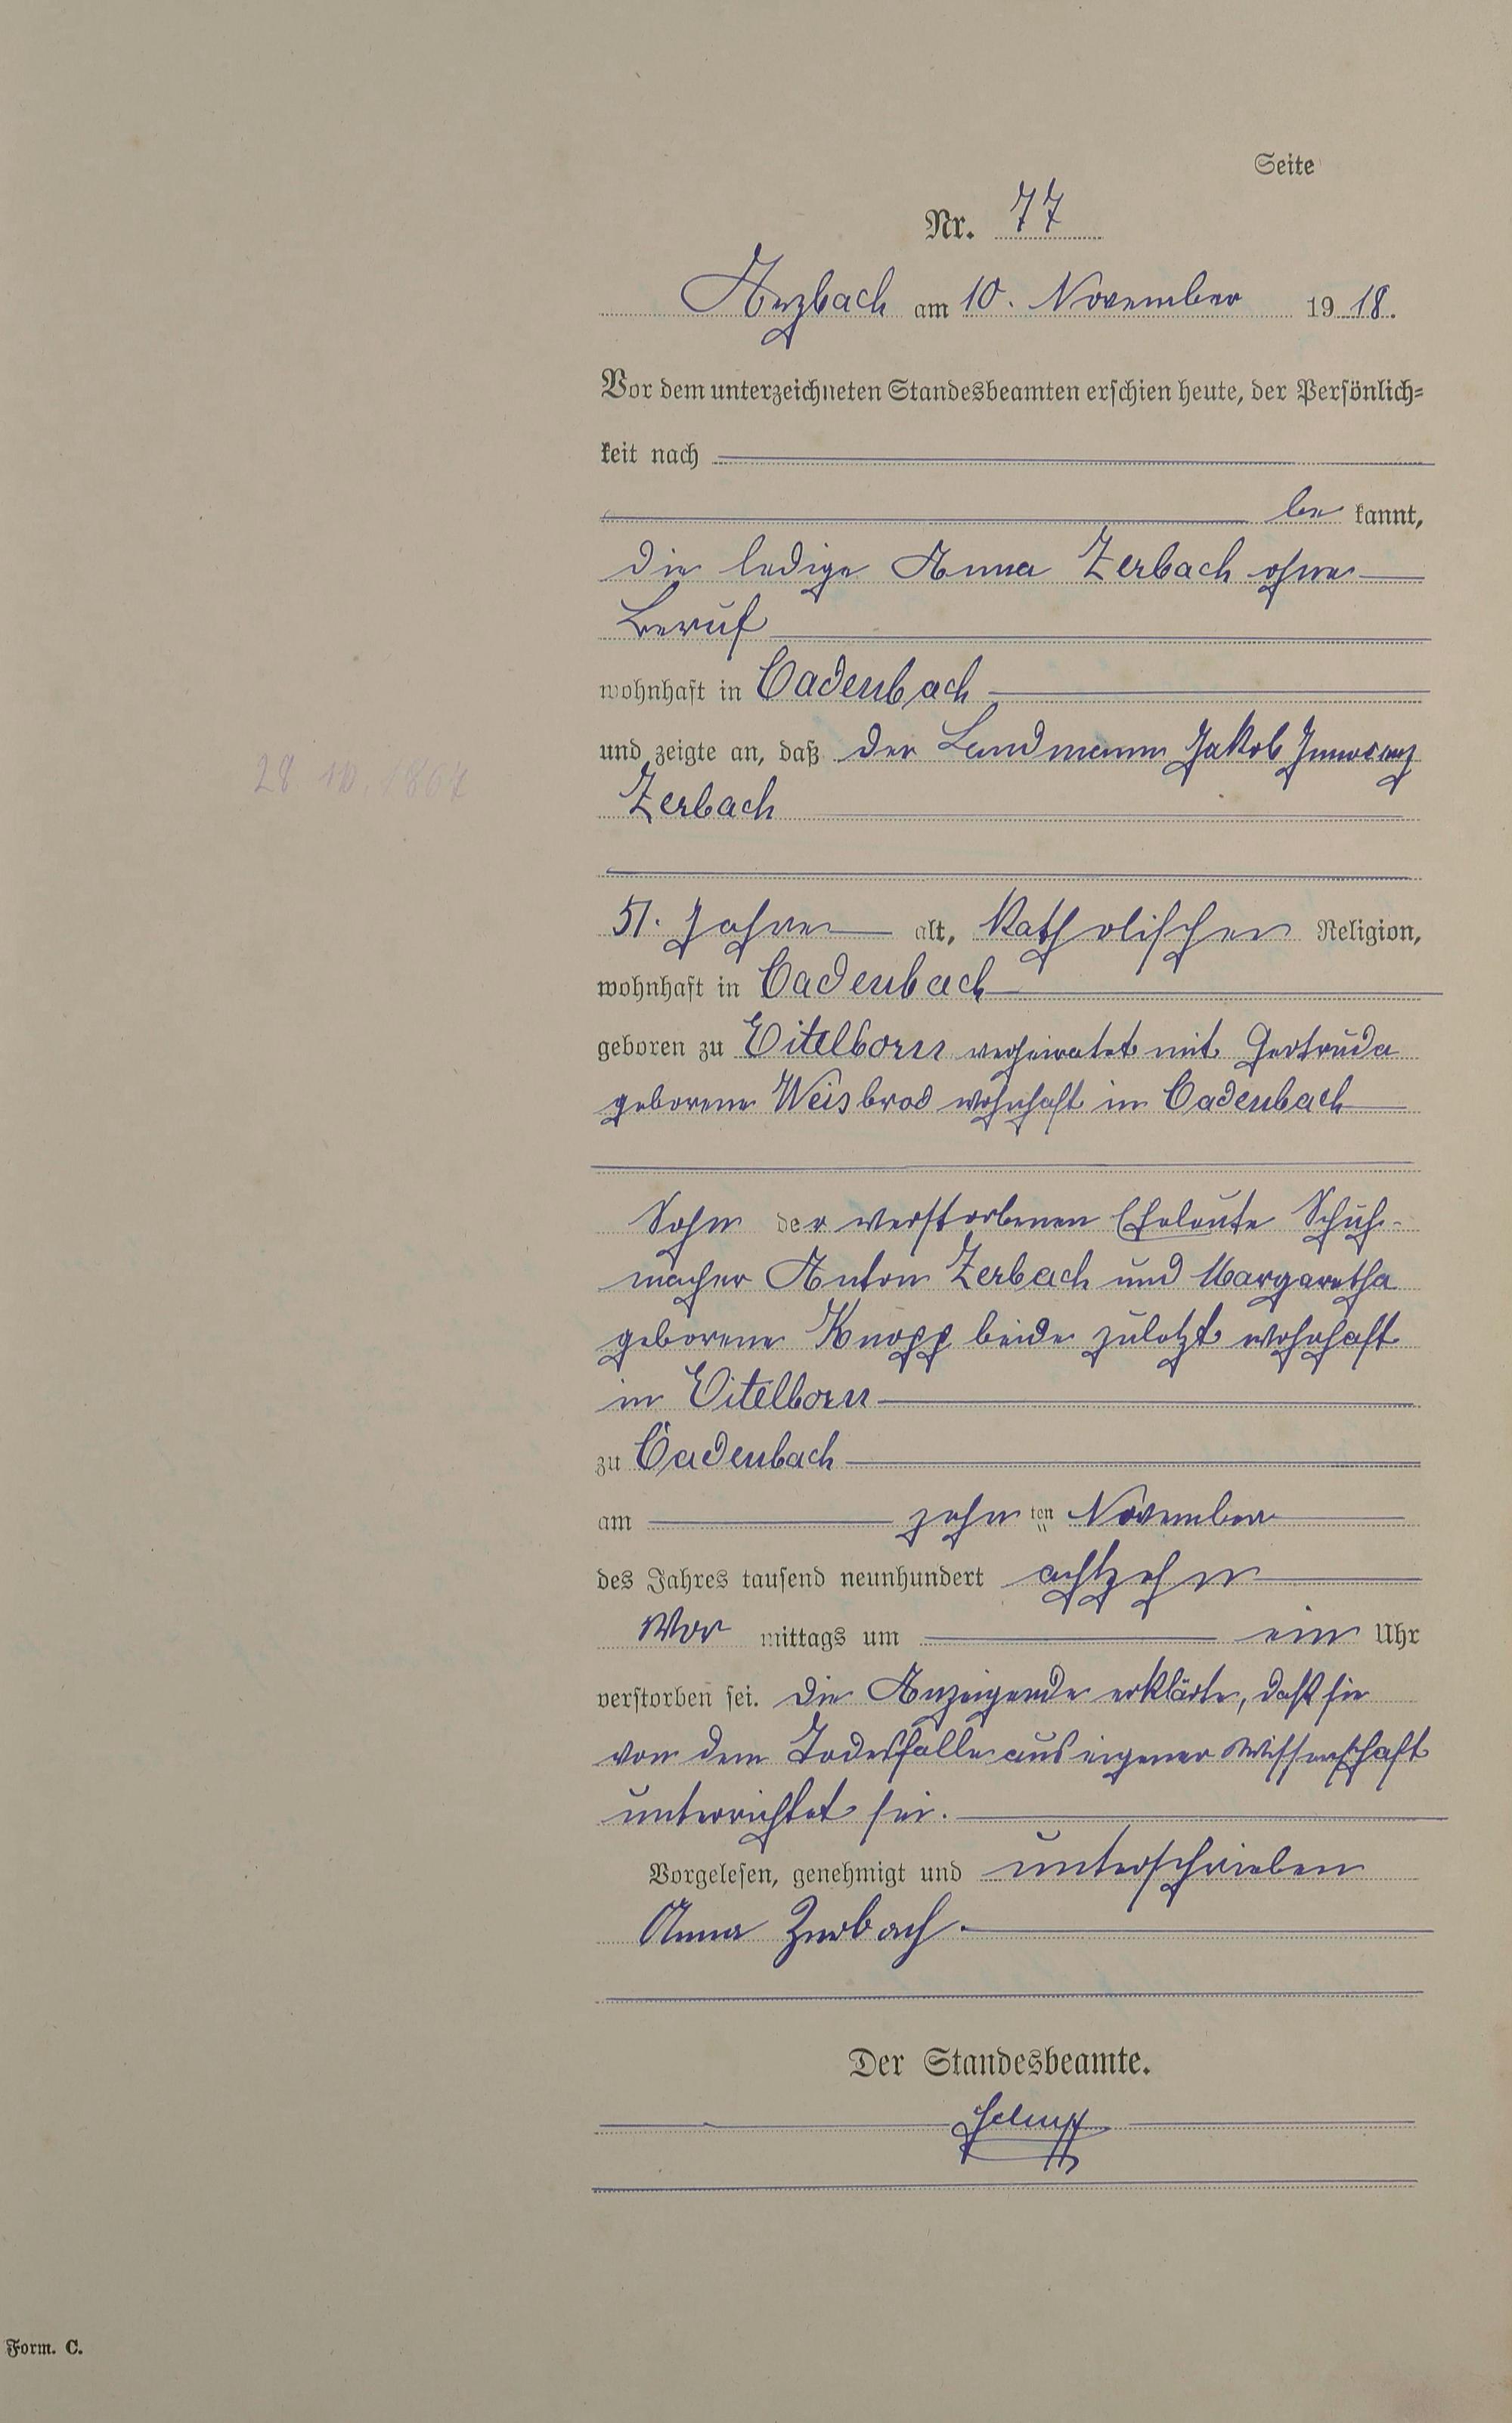 Seite
Nr. 77
Arzbach am 10. November 1918.
Vor dem unterzeichneten Standesbeamten erschien heute, der Persönlich=
keit nach
be kannt,
die ledige Anna Zerbach ohne
Beruf
wohnhaft in Cadenbach
und zeigte an, daß der Landmann Jakob
Zerbach
28. 10. 1867
51. Jahre alt, katholischer Religion,
wohnhaft in Cadenbach
geboren zu Eitelborn verheiratet mit Gertruda
geborene Weisbrod wohnhaft in Cadenbach
Sohn der verstorbenen Eheleute Schuh-
macher Anton Zerbach und Margaretha
geborene Knopp beide zuletzt wohnhaft
in Eitelborn
zu Cadenbach
am zehn ten November
des Jahres tausend neunhundert achtzehn
Vor mittags um ein Uhr
verstorben sei. Die Anzeigende erklärte, daß sie
von dem Todesfalle aus eigener Wissenschaft
unterrichtet sei.
Vorgelesen, genehmigt und unterschrieben
Anna Zerbach.
Der Standesbeamte.
Form. C.